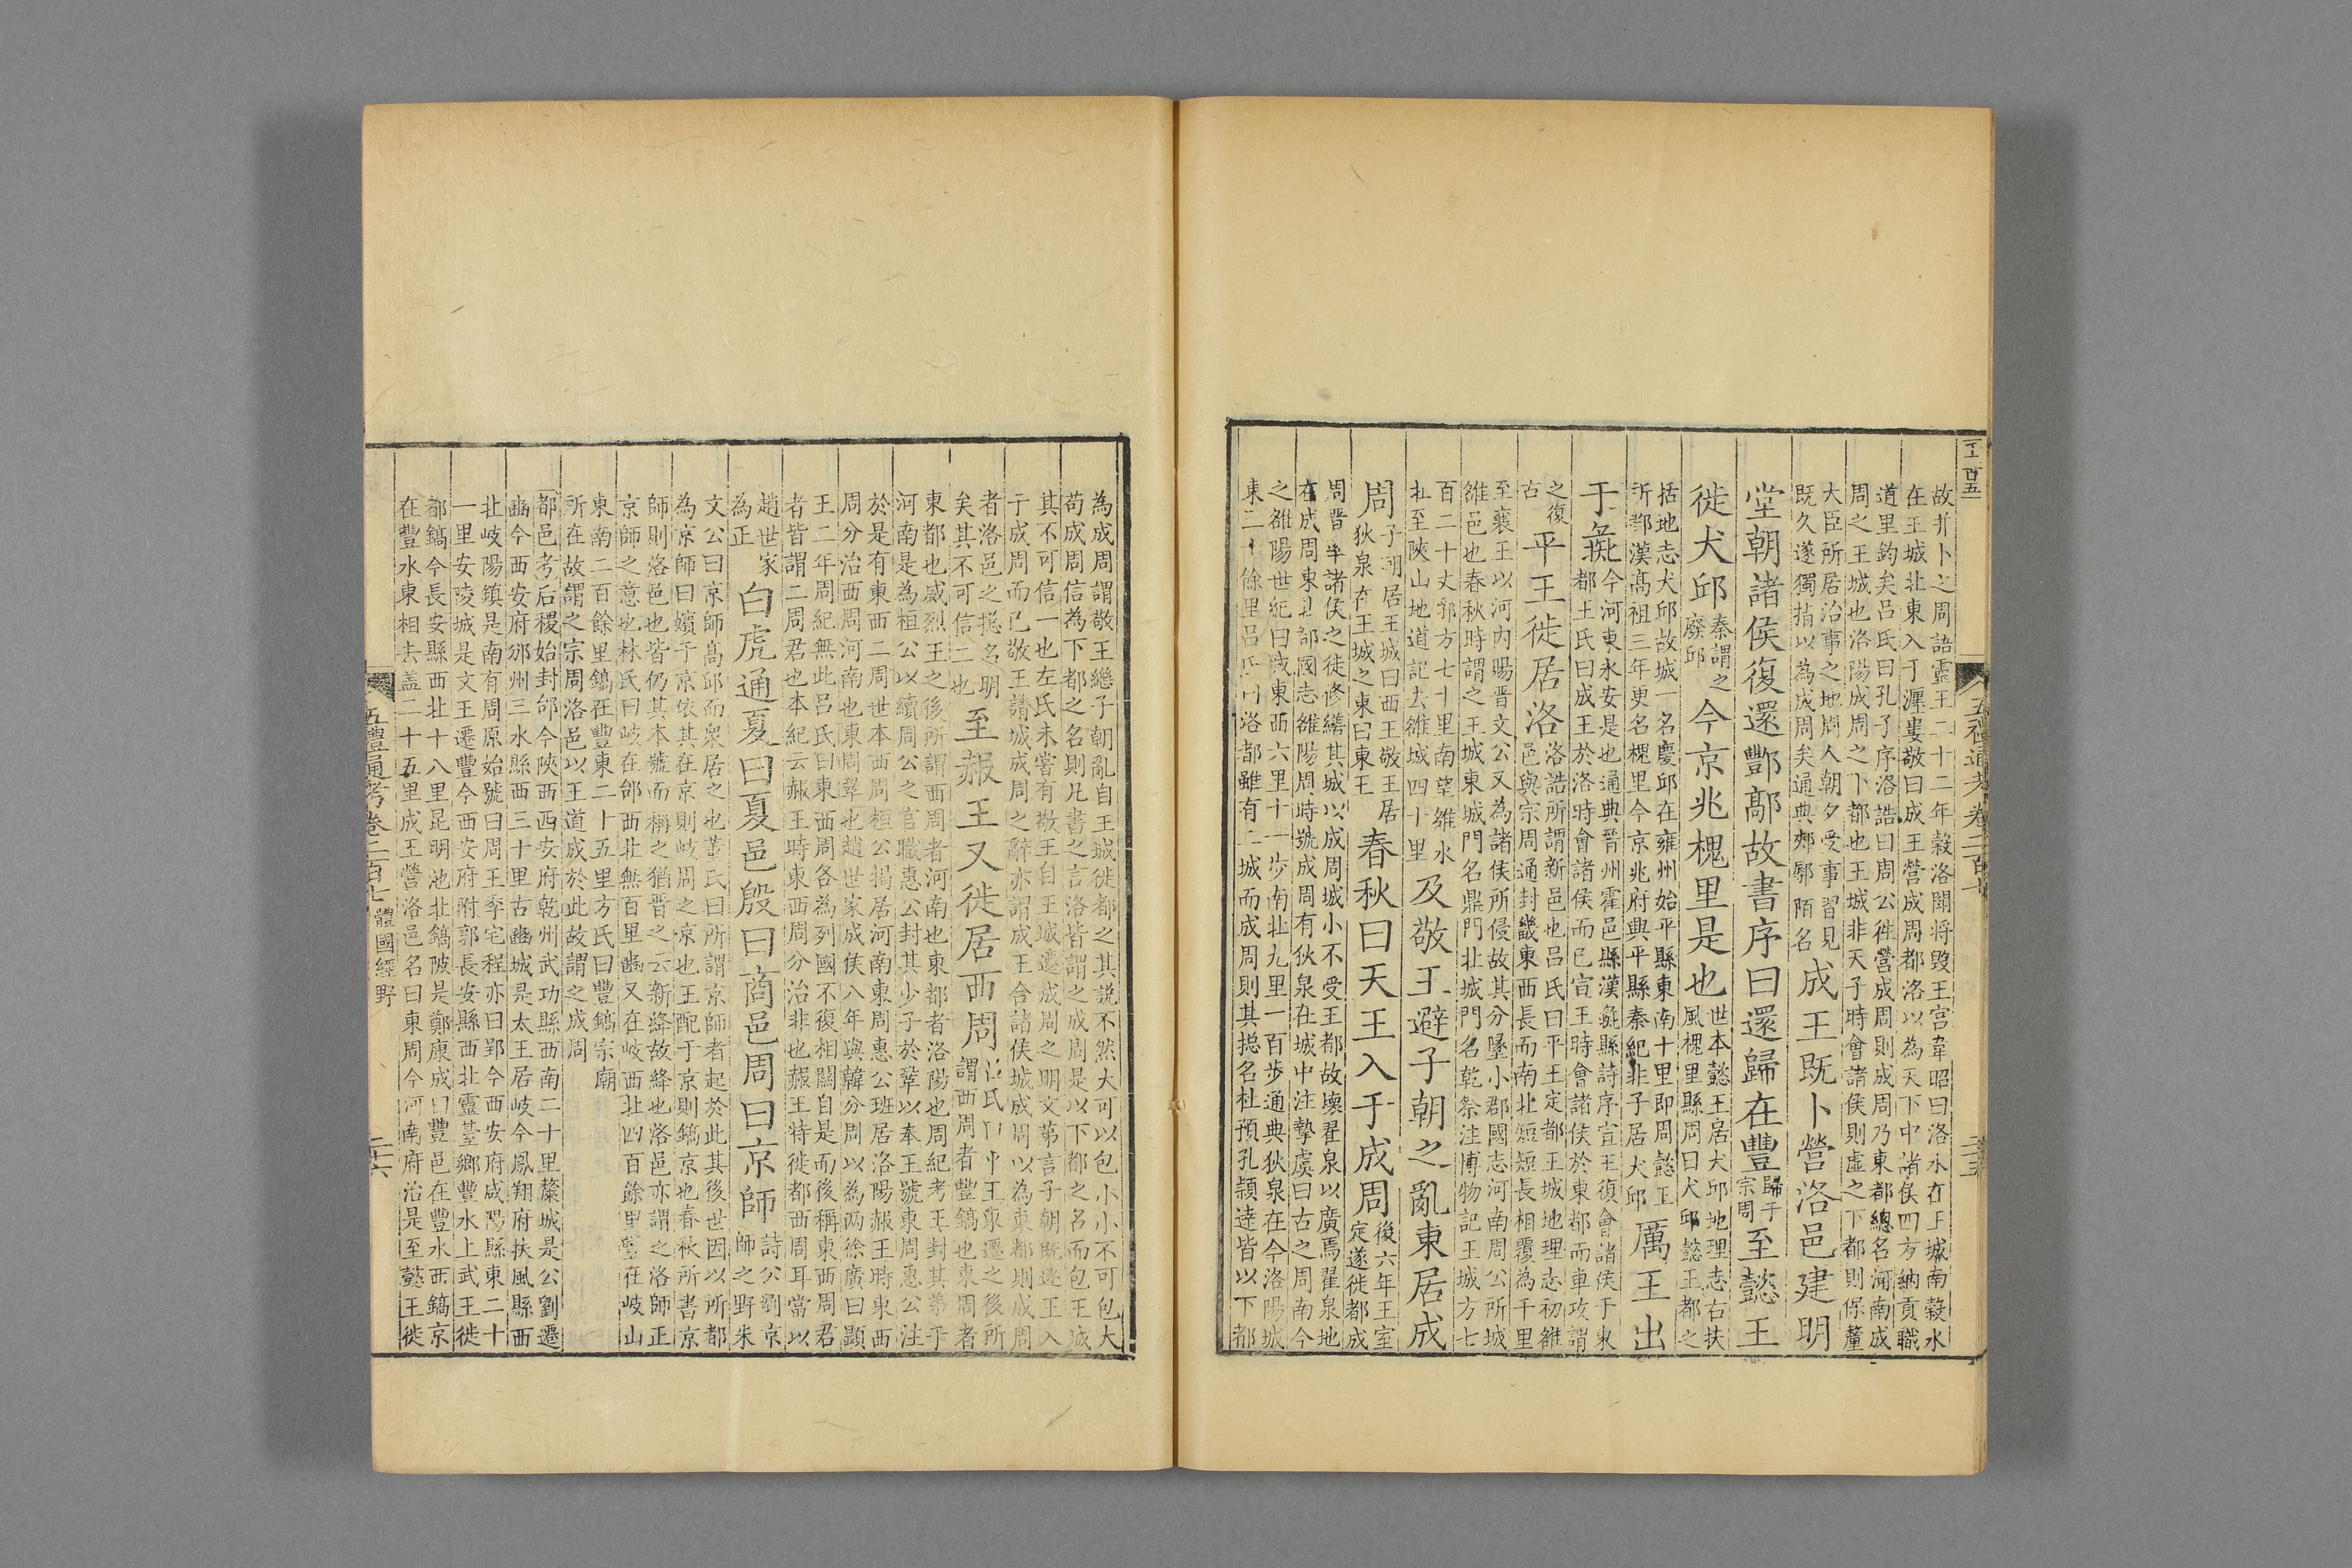 故并卜之周語靈王二十二年穀洛鬭将毀王宫韋昭曰洛水在王城南穀水
在王城北東入于瀍婁敬曰成王營成周都洛以為天下中諸侯四方納貢職
道里鈞矣吕氏曰孔子序洛誥曰周公徃營成周則成周乃東都總名河南成
周之王城也洛陽成周之下都也王城非天子時會諸侯則虚之下都則保釐
大臣所居治事之地周人朝夕受事習見
既久遂獨指以為成周矣通典郟鄏陌名
成王既卜營洛邑建明
堂朝諸侯復還酆鄗故書序曰還歸在豐
歸于
宗周
至懿王
徙犬邱
秦謂之
廢邱
今京兆槐里是也
世本懿王居犬邱地理志右扶
風槐里縣周曰犬邱懿王都之
括地志犬邱故城一名慶邱在雍州始平縣東南十里即周懿王
所都漢髙祖三年更名槐里今京兆府興平縣秦紀非子居犬邱
厲王出
于彘
今河東永安是也通典晋州霍邑縣漢彘縣詩序宣王復會諸侯于東
都王氏曰成王於洛時會諸侯而已宣王時會諸侯於東都而車攻謂
之復
古
平王徙居洛
洛誥所謂新邑也吕氏曰平王定都王城地理志初雒
邑與宗周通封畿東西長而南北短短長相覆為千里
至襄王以河内賜晋文公又為諸侯所侵故其分墬小郡國志河南周公所城
雒邑也春秋時謂之王城東城門名鼎門北城門名乾祭注博物記王城方七
百二十丈郛方七十里南望雒水
北至陝山地道記去雒城四十里
及敬王避子朝之亂東居成
周
子朝居王城曰西王敬王居
狄泉在王城之東曰東王
春秋曰天王入于成周
後六年王室
定遂徙都成
周晋率諸侯之徒修繕其城以成周城小不受王都故壞翟泉以廣焉翟泉地
在成周東北郡國志雒陽周時號成周有狄泉在城中注摯虞曰古之周南今
之雒陽世紀曰城東西六里十一步南北九里一百步通典狄泉在今洛陽城
東二十餘里吕氏曰洛都雖有二城而成周則其揔名杜預孔頴逹皆以下都
五禮通考卷二百十
二十五
為成周謂敬王繼子朝亂自王城徙都之其説不然大可以包小小不可包大
苟成周信為下都之名則凡書之言洛皆謂之成周是以下都之名而包王城
其不可信一也左氏未嘗有敬王自王城遷成周之明文第言子朝既逐王入
于成周而已敬王請城成周之辭亦謂成王合諸侯城成周以為東都則成周
者洛邑之揔名明
矣其不可信二也
至赧王又徙居西周
謂西周者豐鎬也東周者
東都也威烈王之後所謂西周者河南也東都者洛陽也周紀考王封其弟于
河南是為桓公以續周公之官職惠公封其少子於鞏以奉王號東周惠公注
於是有東西二周世本西周桓公揭居河南東周惠公班居洛陽赧王時東西
周分治西周河南也東周鞏也趙世家成侯八年與韓分周以為两徐廣曰顯
王二年周紀無此吕氏曰東西周各為列國不復相關自是而後稱東西周君
者皆謂二周君也本紀云赧王時東西周分治非也赧王特徙都西周耳當以
趙世家
為正
白虎通夏曰夏邑殷曰商邑周曰京師
詩公劉京
師之野朱
文公曰京師髙邱而衆居之也董氏曰所謂京師者起於此其後世因以所都
為京師曰嬪于京依其在京則岐周之京也王配于京則鎬京也春秋所書京
師則洛邑也皆仍其本號而稱之猶晋之云新絳故絳也洛邑亦謂之洛師正
京師之意也林氏曰岐在邰西北無百里豳又在岐西北四百餘里豐在岐山
東南二百餘里鎬在豐東二十五里方氏曰豐鎬宗廟
所在故謂之宗周洛邑以王道成於此故謂之成周
都邑考后稷始封邰今陝西西安府乾州武功縣西南二十里斄城是公劉遷
豳今西安府邠州三水縣西三十里古豳城是太王居岐今鳳翔府扶風縣西
北岐陽鎮是南有周原始號曰周王季宅程亦曰郢今西安府咸陽縣東二十
一里安陵城是文王遷豐今西安府附郭長安縣西北靈䑓鄉豐水上武王徙
都鎬今長安縣西北十八里昆明池北鎬陂是鄭康成曰豐邑在豐水西鎬京
在豐水東相去盖二十五里成王營洛邑名曰東周今河南府治是至懿王徙
五禮通考卷二百十
體國經野
二十六